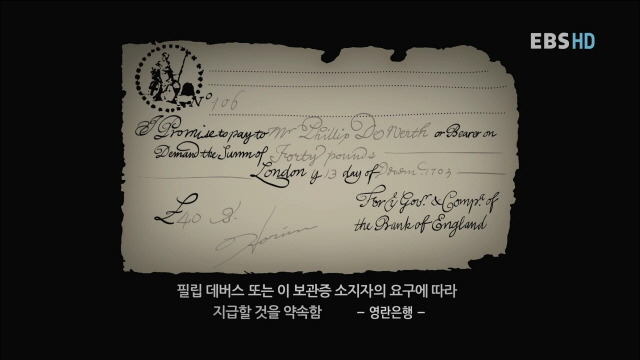 EBS HD
Nº 106
I Promise to pay to Mr Phillip De Werth or Bearer on
Demand the Summ of Forty pounds
London y 13 day of 1703
For y Govr. & Compa. of
£40 the Bank of England
필립 데버스 또는 이 보관증 소지자의 요구에 따라
지급할 것을 약속함 – 영란은행 –